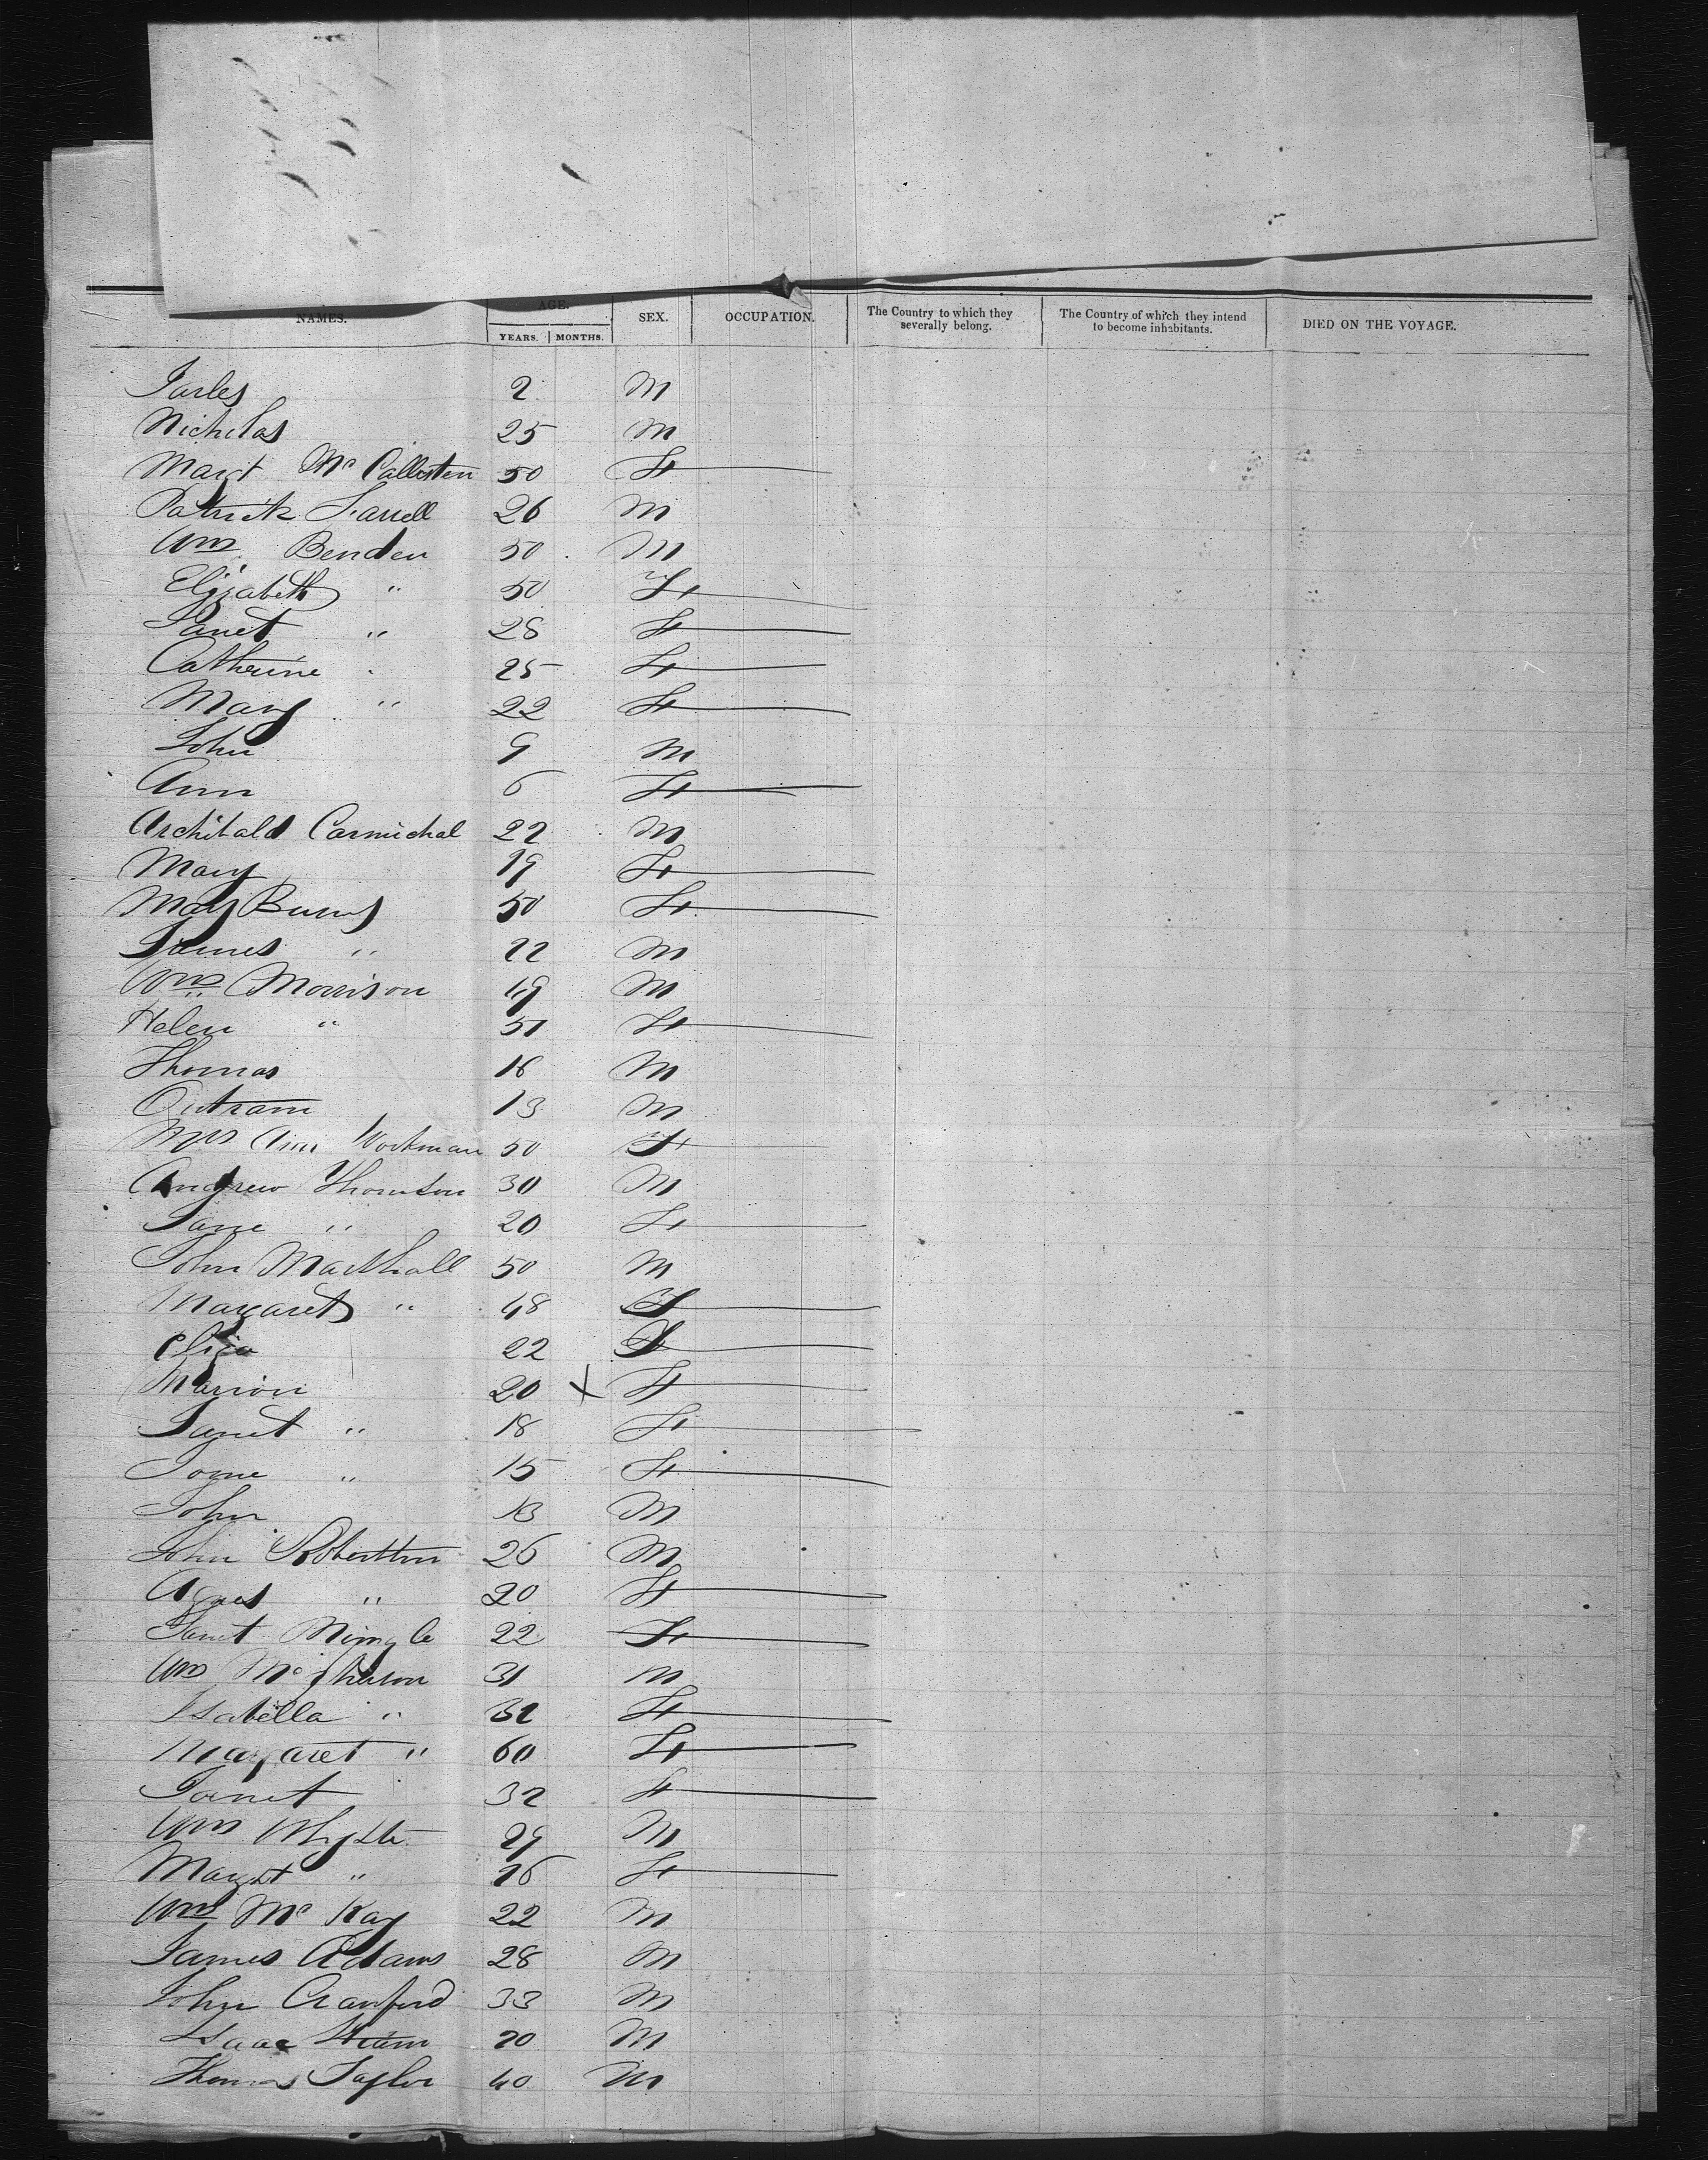 NAMES. AGE. SEX. OCCUPATION. The Country to which they severally belong. The Country of which they intend to become inhabitants. DIED ON THE VOYAGE.
YEARS. MONTHS.
2 M
Nicholas 25 M
Margt Mc Callisten 50 F
Patrick Farrell 26 M
Wm Benden 50 M
Elizabeth " 50 F
Janet " 28 F
Catherine " 25 F
Mary " 22 F
John 9 M
Ann 6 F
Archibald Carmichal 22 M
Mary 19 F
May Burns 50 F
James " 22 M
Wm Morrison 49 M
Helen " 51 F
Thomas 16 M
Outram 13 M
Mrs Ann Workman 50 F
Andrew Thomson 30 M
Jane " 20 F
John Marshall 50 M
Margaret " 48 F
Eliza 22 F
Marion 20 X F
Janet " 18 F
Jane " 15 F
John 13 M
John Robertson 26 M
Agnes " 20 F
Janet Mingle 22 F
Wm Mc Pherson 31 M
Isabella " 32 F
Margaret " 60 F
Janet 32 F
Wm Whyte 29 M
Margrt " 26 F
Wm Mc Kay 22 M
James Adams 28 M
John Cranford 33 M
Isaac 20 M
Thomas Taylor 40 M